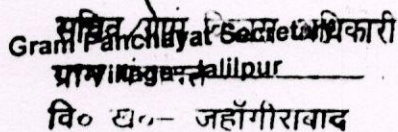 सचिव/ग्राम विकास अधिकारी
Gram Panchayat Secretary
ग्राम पंचायत
Village- Jalilpur
वि० ख०– जहाँगीराबाद